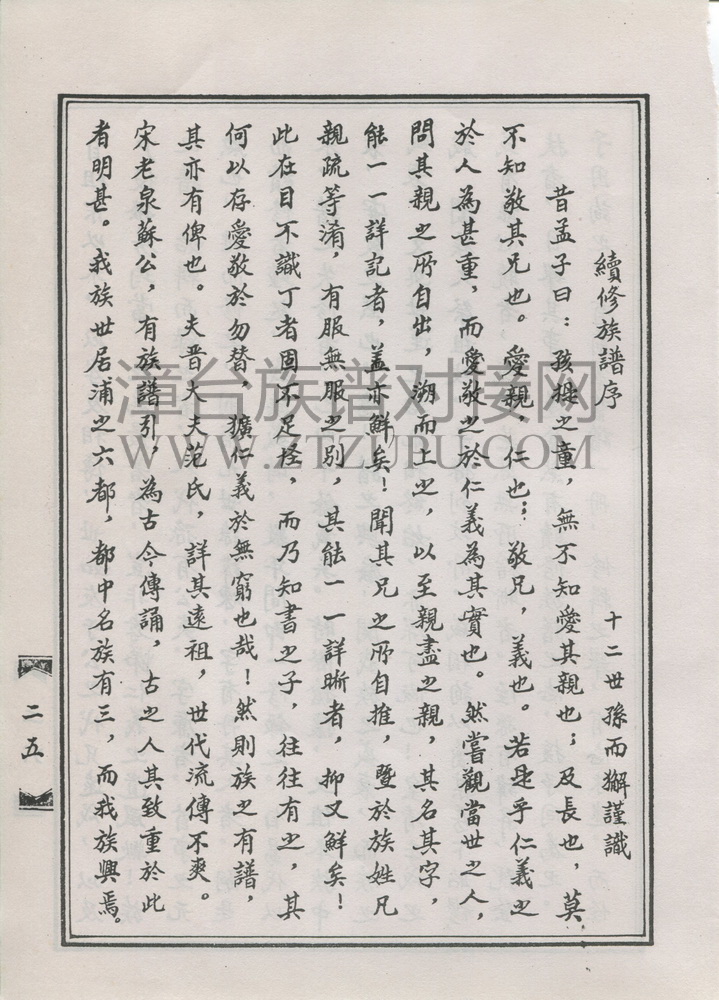 續修族譜序
十二世孫而獬謹識
昔孟子曰：孩提之童，無不知愛其親也；及長也，莫
不知敬其兄也。愛親、仁也；敬兄，義也。若是乎仁義之
於人為甚重，而愛敬之於仁義為其實也。然嘗觀當世之人，
問其親之所自出，溯而上之，以至親盡之親，其名其字，
能一一詳記者，蓋亦鮮矣！聞其兄之所自推，暨於族姓凡
親疏等淆，有服無服之別，其能一一詳晰者，抑又鮮矣！
此在目不識丁者固不足怪，而乃知書之子，往往有之，其
何以存愛敬於勿替，獷仁義於無窮也哉！然則族之有譜，
其亦有俾也。夫晋大夫范氏，詳其遠祖，世代流傳不爽。
宋老泉蘇公，有族譜引，為古今傳誦，古之人其致重於此
者明甚。我族世居浦之六都，都中名族有三，而我族興焉。
二五
漳台族谱对接网
WWW.ZTZUPU.COM